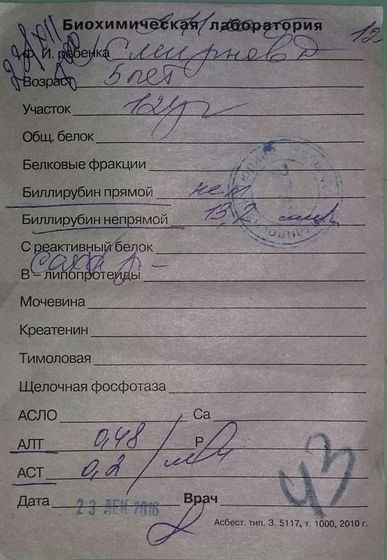 Биохимическая лаборатория
Ф. И. ребенка Смирнов Д
Возраст 5 лет
Участок 12 уч
Общ. белок
Белковые фракции
Биллирубин прямой нет
Биллирубин непрямой 13,2
С реактивный белок
В – липопротеиды
Сахар –
Мочевина
Креатенин
Тимоловая
Щелочная фосфотаза
АСЛО Са
АЛТ 0,48 Р
АСТ 0,2
Дата 23 ДЕК 2016 Врач
43
Асбест. тип. З. 5117, т. 1000, 2010 г.